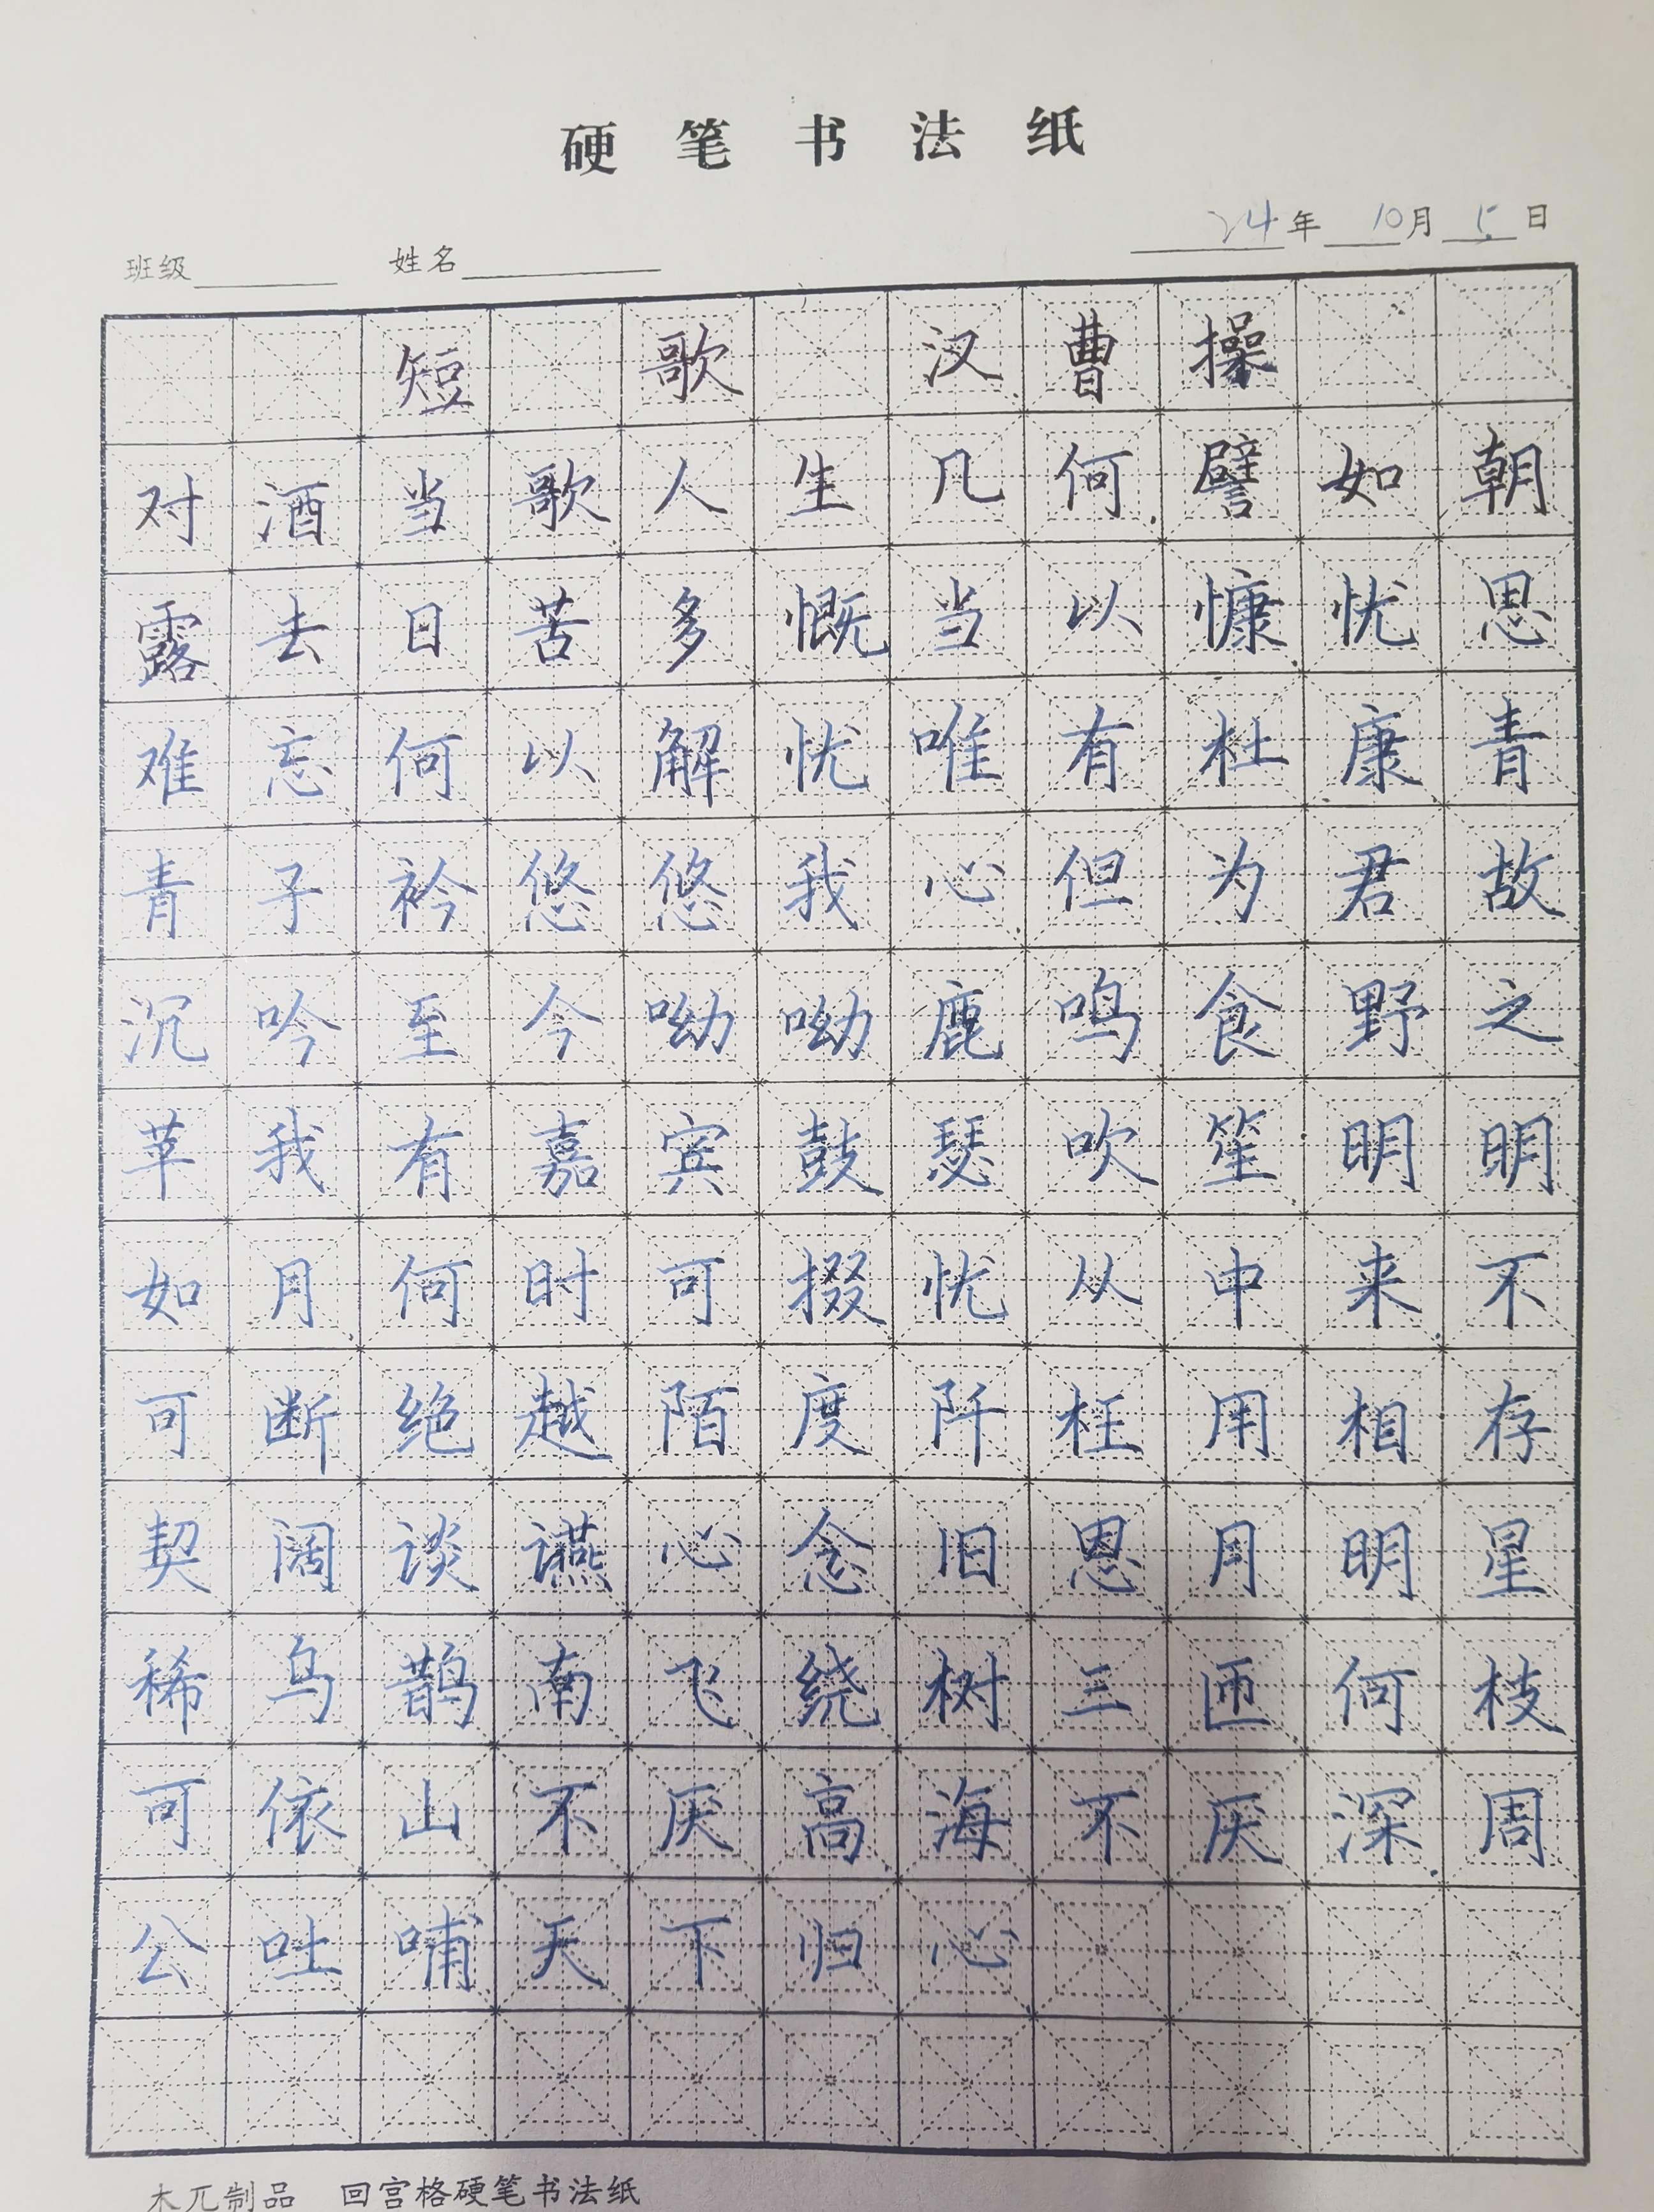 硬笔书法纸
24年10月5日
班级 姓名
短歌 汉曹操
对酒当歌人生几何譬如朝
露去日苦多慨当以慷忧思
难忘何以解忧唯有杜康青
青子衿悠悠我心但为君故
沉吟至今呦呦鹿鸣食野之
苹我有嘉宾鼓瑟吹笙明明
如月何时可掇忧从中来不
可断绝越陌度阡枉用相存
契阔谈讌心念旧恩月明星
稀乌鹊南飞绕树三匝何枝
可依山不厌高海不厌深周
公吐哺天下归心
木兀制品 回宫格硬笔书法纸